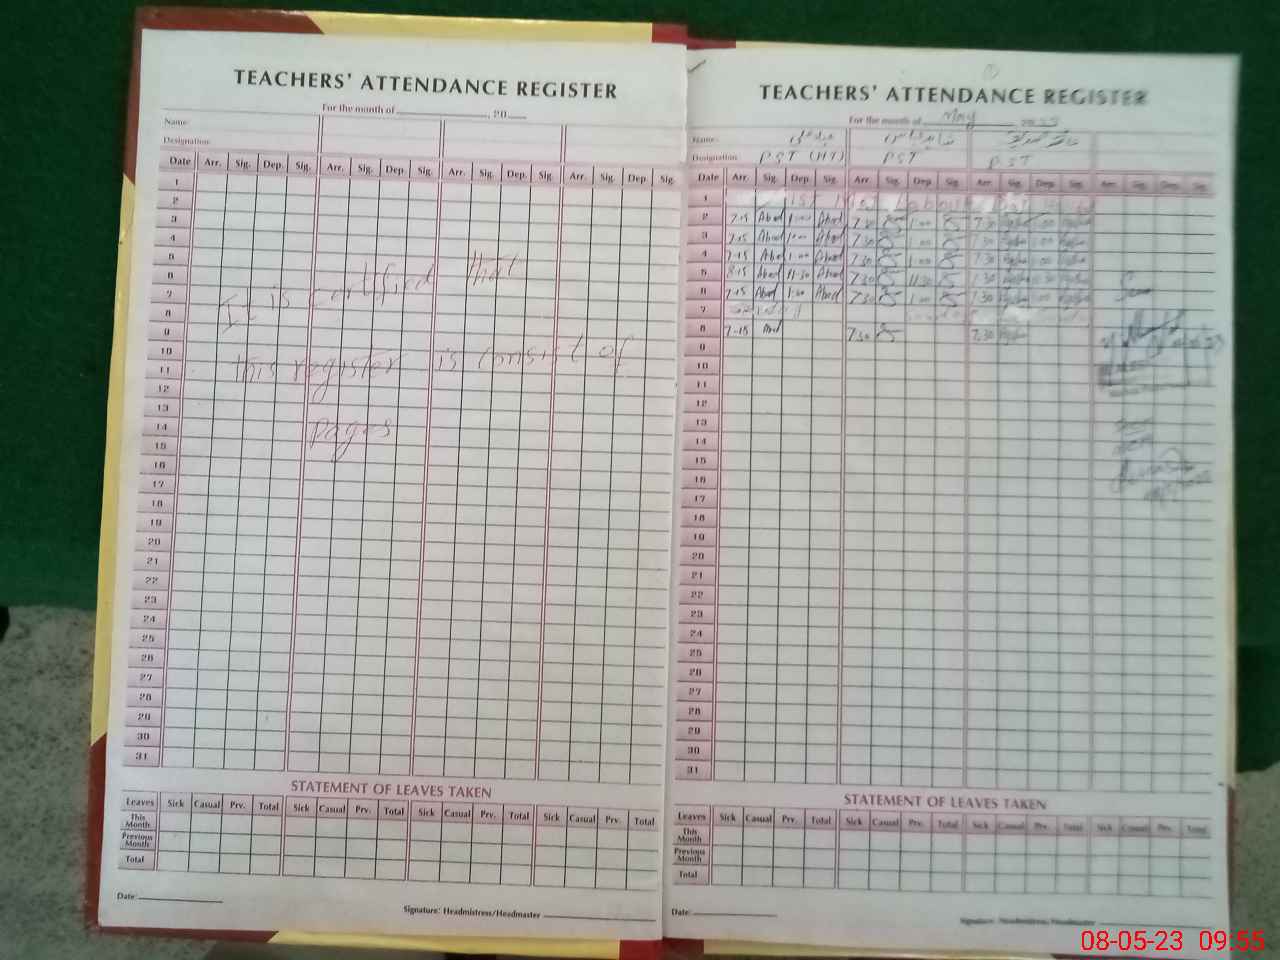 TEACHERS' ATTENDANCE REGISTER
For the month of , 20
Name:
Designation:
Date Arr. Sig. Dep. Sig. Arr. Sig. Dep. Sig. Arr. Sig. Dep. Sig. Arr. Sig. Dep. Sig.
1
2
3
4
5
6
7
8
9
10
11
12
13
14
15
16
17
18
19
20
21
22
23
24
25
26
27
28
29
30
31
It is certified that
this register is consist of
pages
STATEMENT OF LEAVES TAKEN
Leaves Sick Casual Prv. Total Sick Casual Prv. Total Sick Casual Prv. Total Sick Casual Prv. Total
This Month
Previous Month
Total
Date:
Signature: Headmistress/Headmaster
TEACHERS' ATTENDANCE REGISTER
For the month of May
Name:
Designation: PST (HT) PST PST
Date Arr. Sig. Dep. Sig. Arr. Sig. Dep. Sig. Arr. Sig. Dep. Sig. Arr. Sig. Dep. Sig.
1 1st May Labour Day
2 7-15 Abed 1:00 Abed 7:30 1:00 7:30 1:00
3 7-15 Abed 1:00 Abed 7:30 1:00 7:30 1:00
4 7-15 Abed 1:00 Abed 7:30 1:00 7:30 1:00
5 8-15 Abed 11-30 Abed 7:30 11:30 7:30
6 7-15 Abed 1:00 Abed 7:30 1:00 7:30 1:00
7
8 7-15 7:30 7:30
9
10
11
12
13
14
15
16
17
18
19
20
21
22
23
24
25
26
27
28
29
30
31
STATEMENT OF LEAVES TAKEN
Leaves Sick Casual Prv. Total Sick Casual Prv. Total Sick Casual Prv. Total Sick Casual Prv. Total
This Month
Previous Month
Total
Date:
Signature: Headmistress/Headmaster
08-05-23 09:55